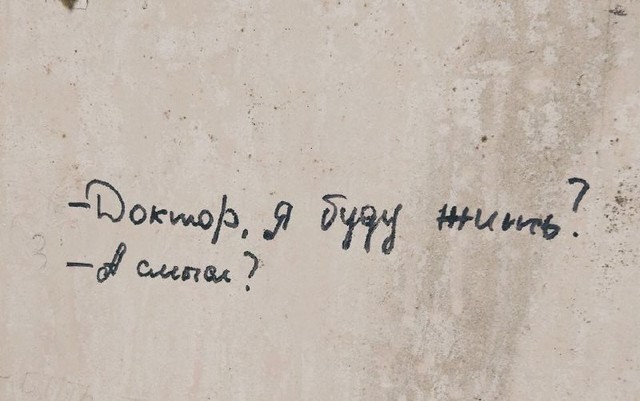 -Доктор, я буду жить?
-А смысл?